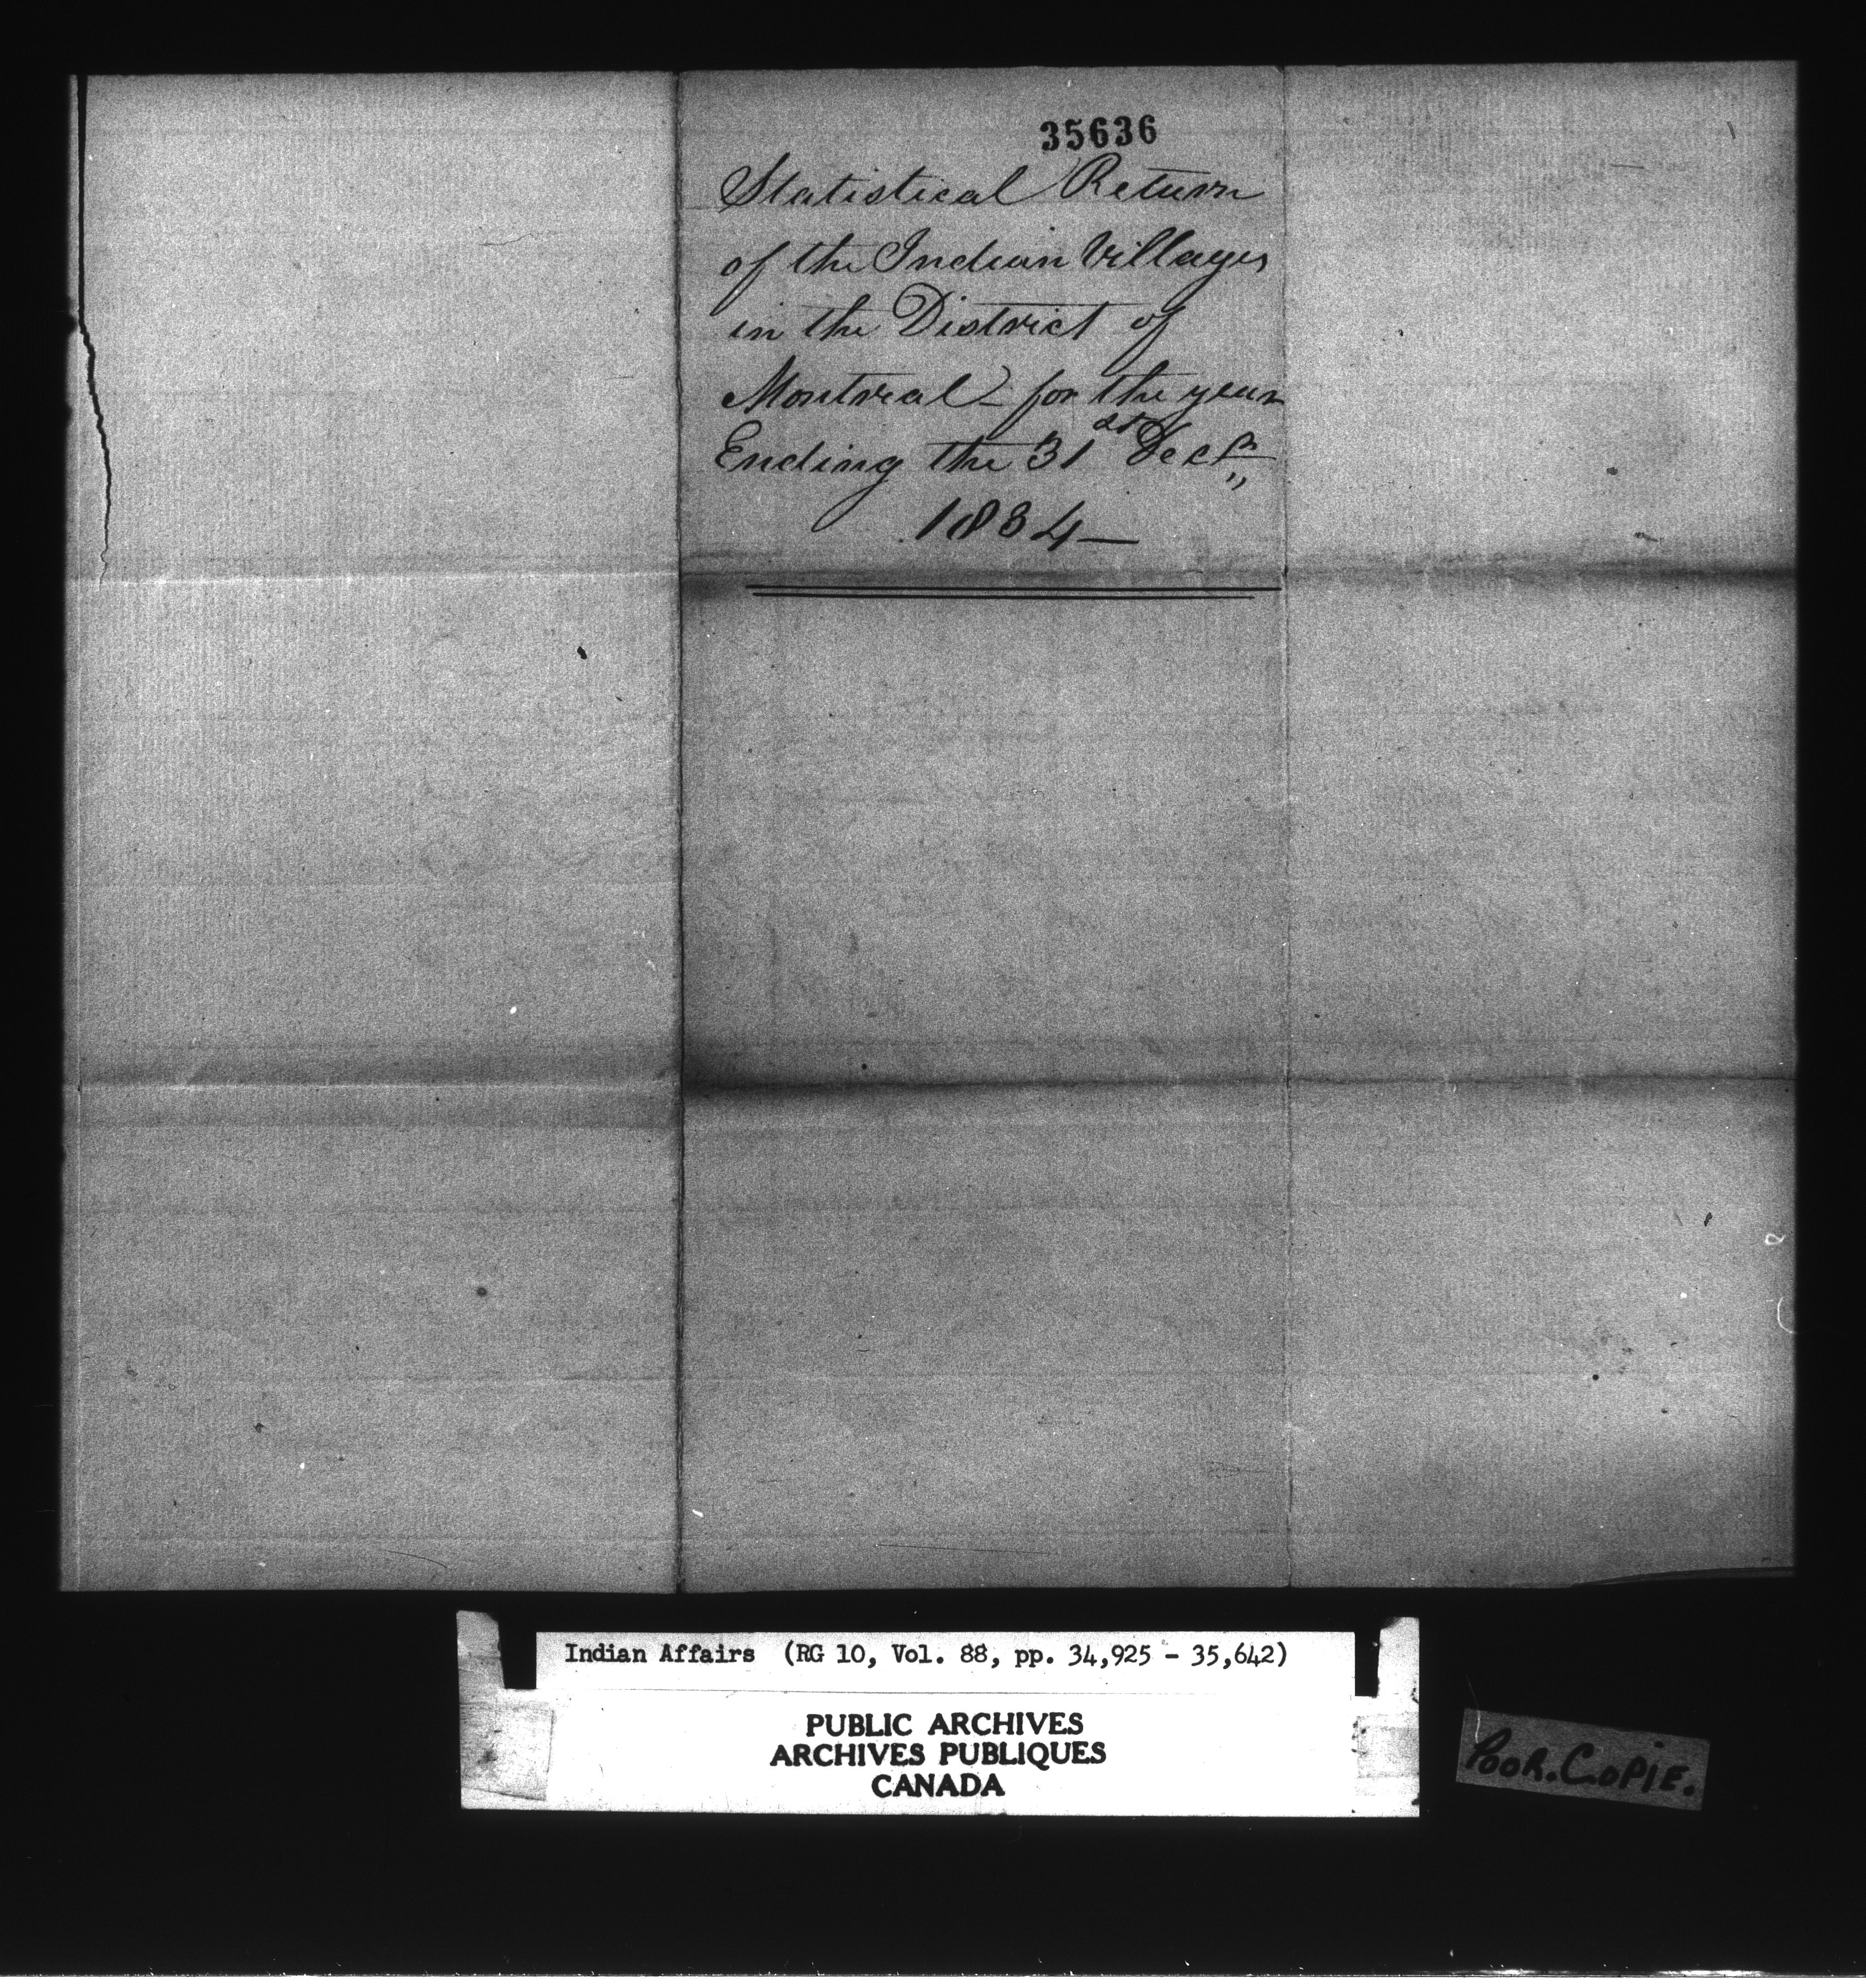 35636
Statistical Return
of the Indian Villages
in the District of
Montreal - for the year
Ending the 31st Decr
1834 —
Indian Affairs (RG 10, Vol. 88, pp. 34,925 - 35,642)
PUBLIC ARCHIVES
ARCHIVES PUBLIQUES
CANADA
POOR. COPIE.